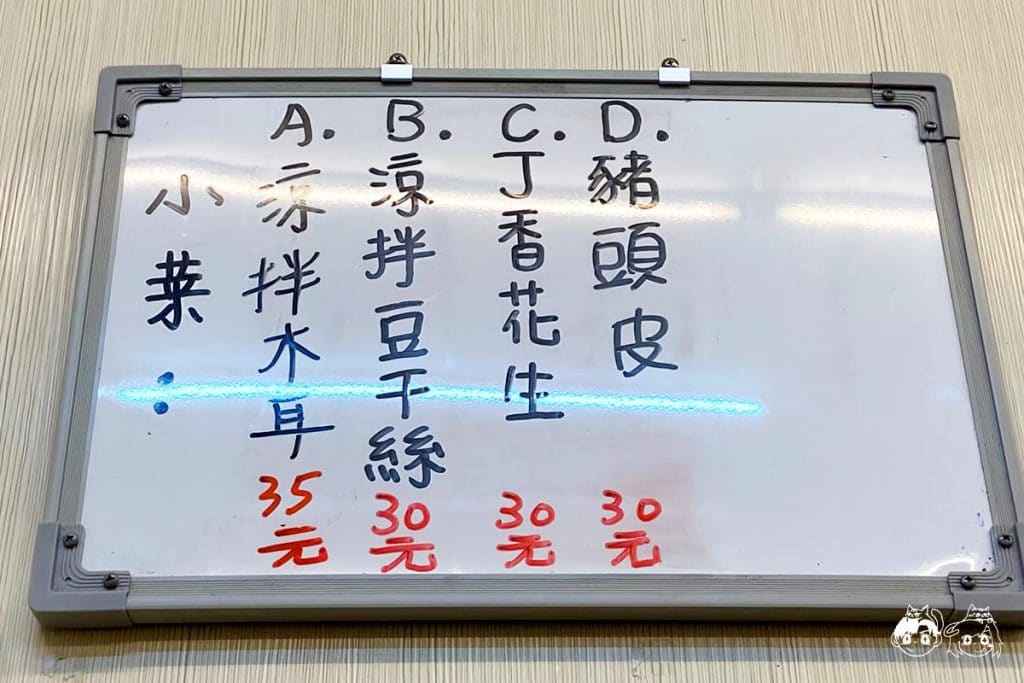 小菜：
A. 涼拌木耳 35元
B. 涼拌豆干絲 30元
C. 丁香花生 30元
D. 豬頭皮 30元